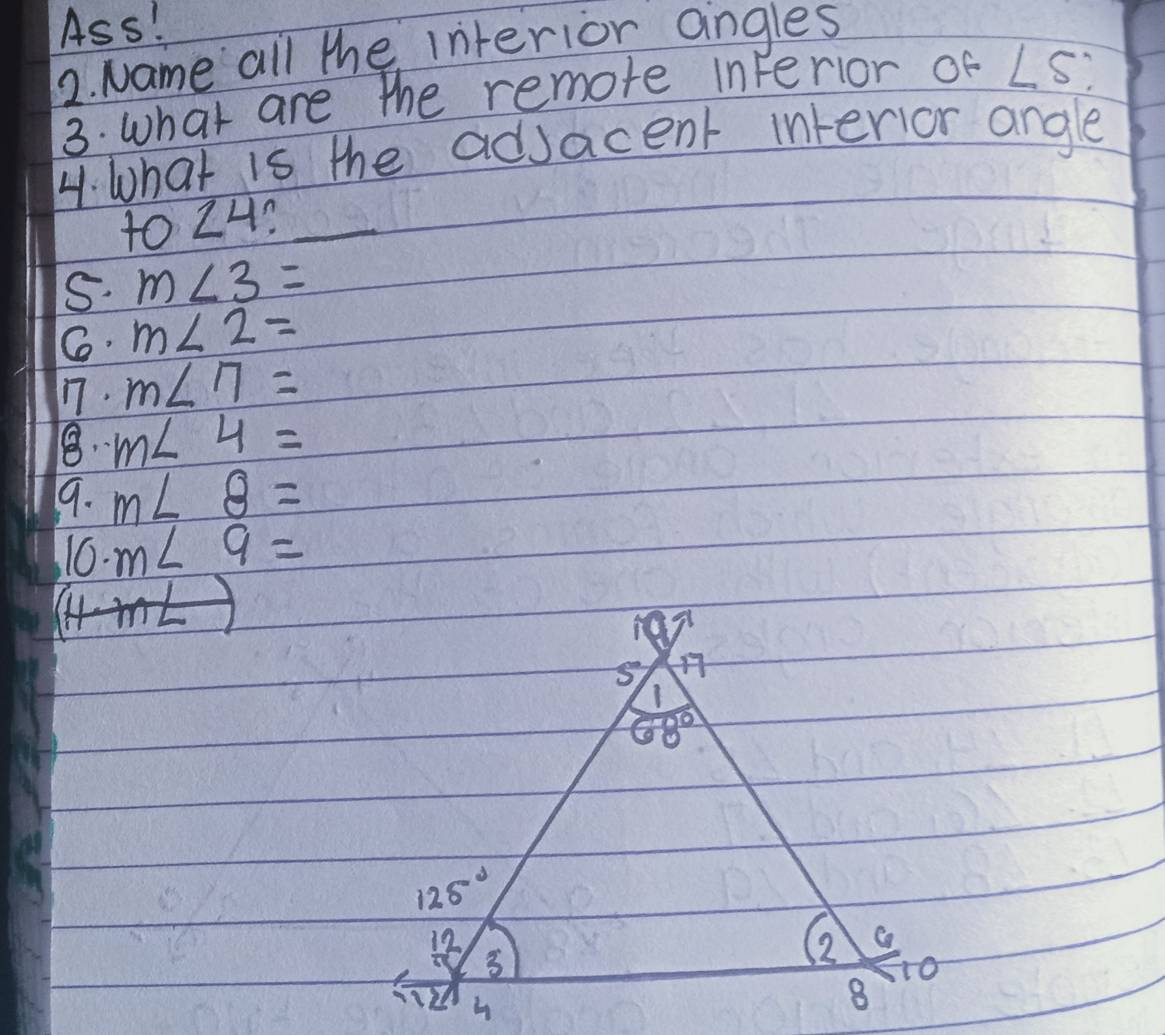 Ass!
2. Name all the interior angles
3. What are the remote interior of ∠5:
4. What is the adjacent interior angle
to ∠4? ___
5. m∠3 =
6. m∠2 =
7. m∠7 =
8. m∠ 4 =
9. m∠ 8 =
10. m∠ 9 =
(11. m∠ )
19
5 7
1
68°
125°
12
3
2 6
10
12
4
8